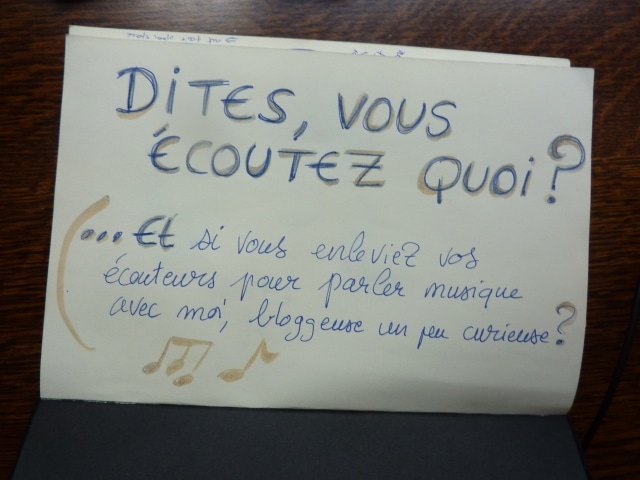 DiTES, VOUS
ÉCOUTEZ QUOi?
(...Et si vous enleviez vos
écouteurs pour parler musique
avec moi, bloggeuse un peu curieuse?